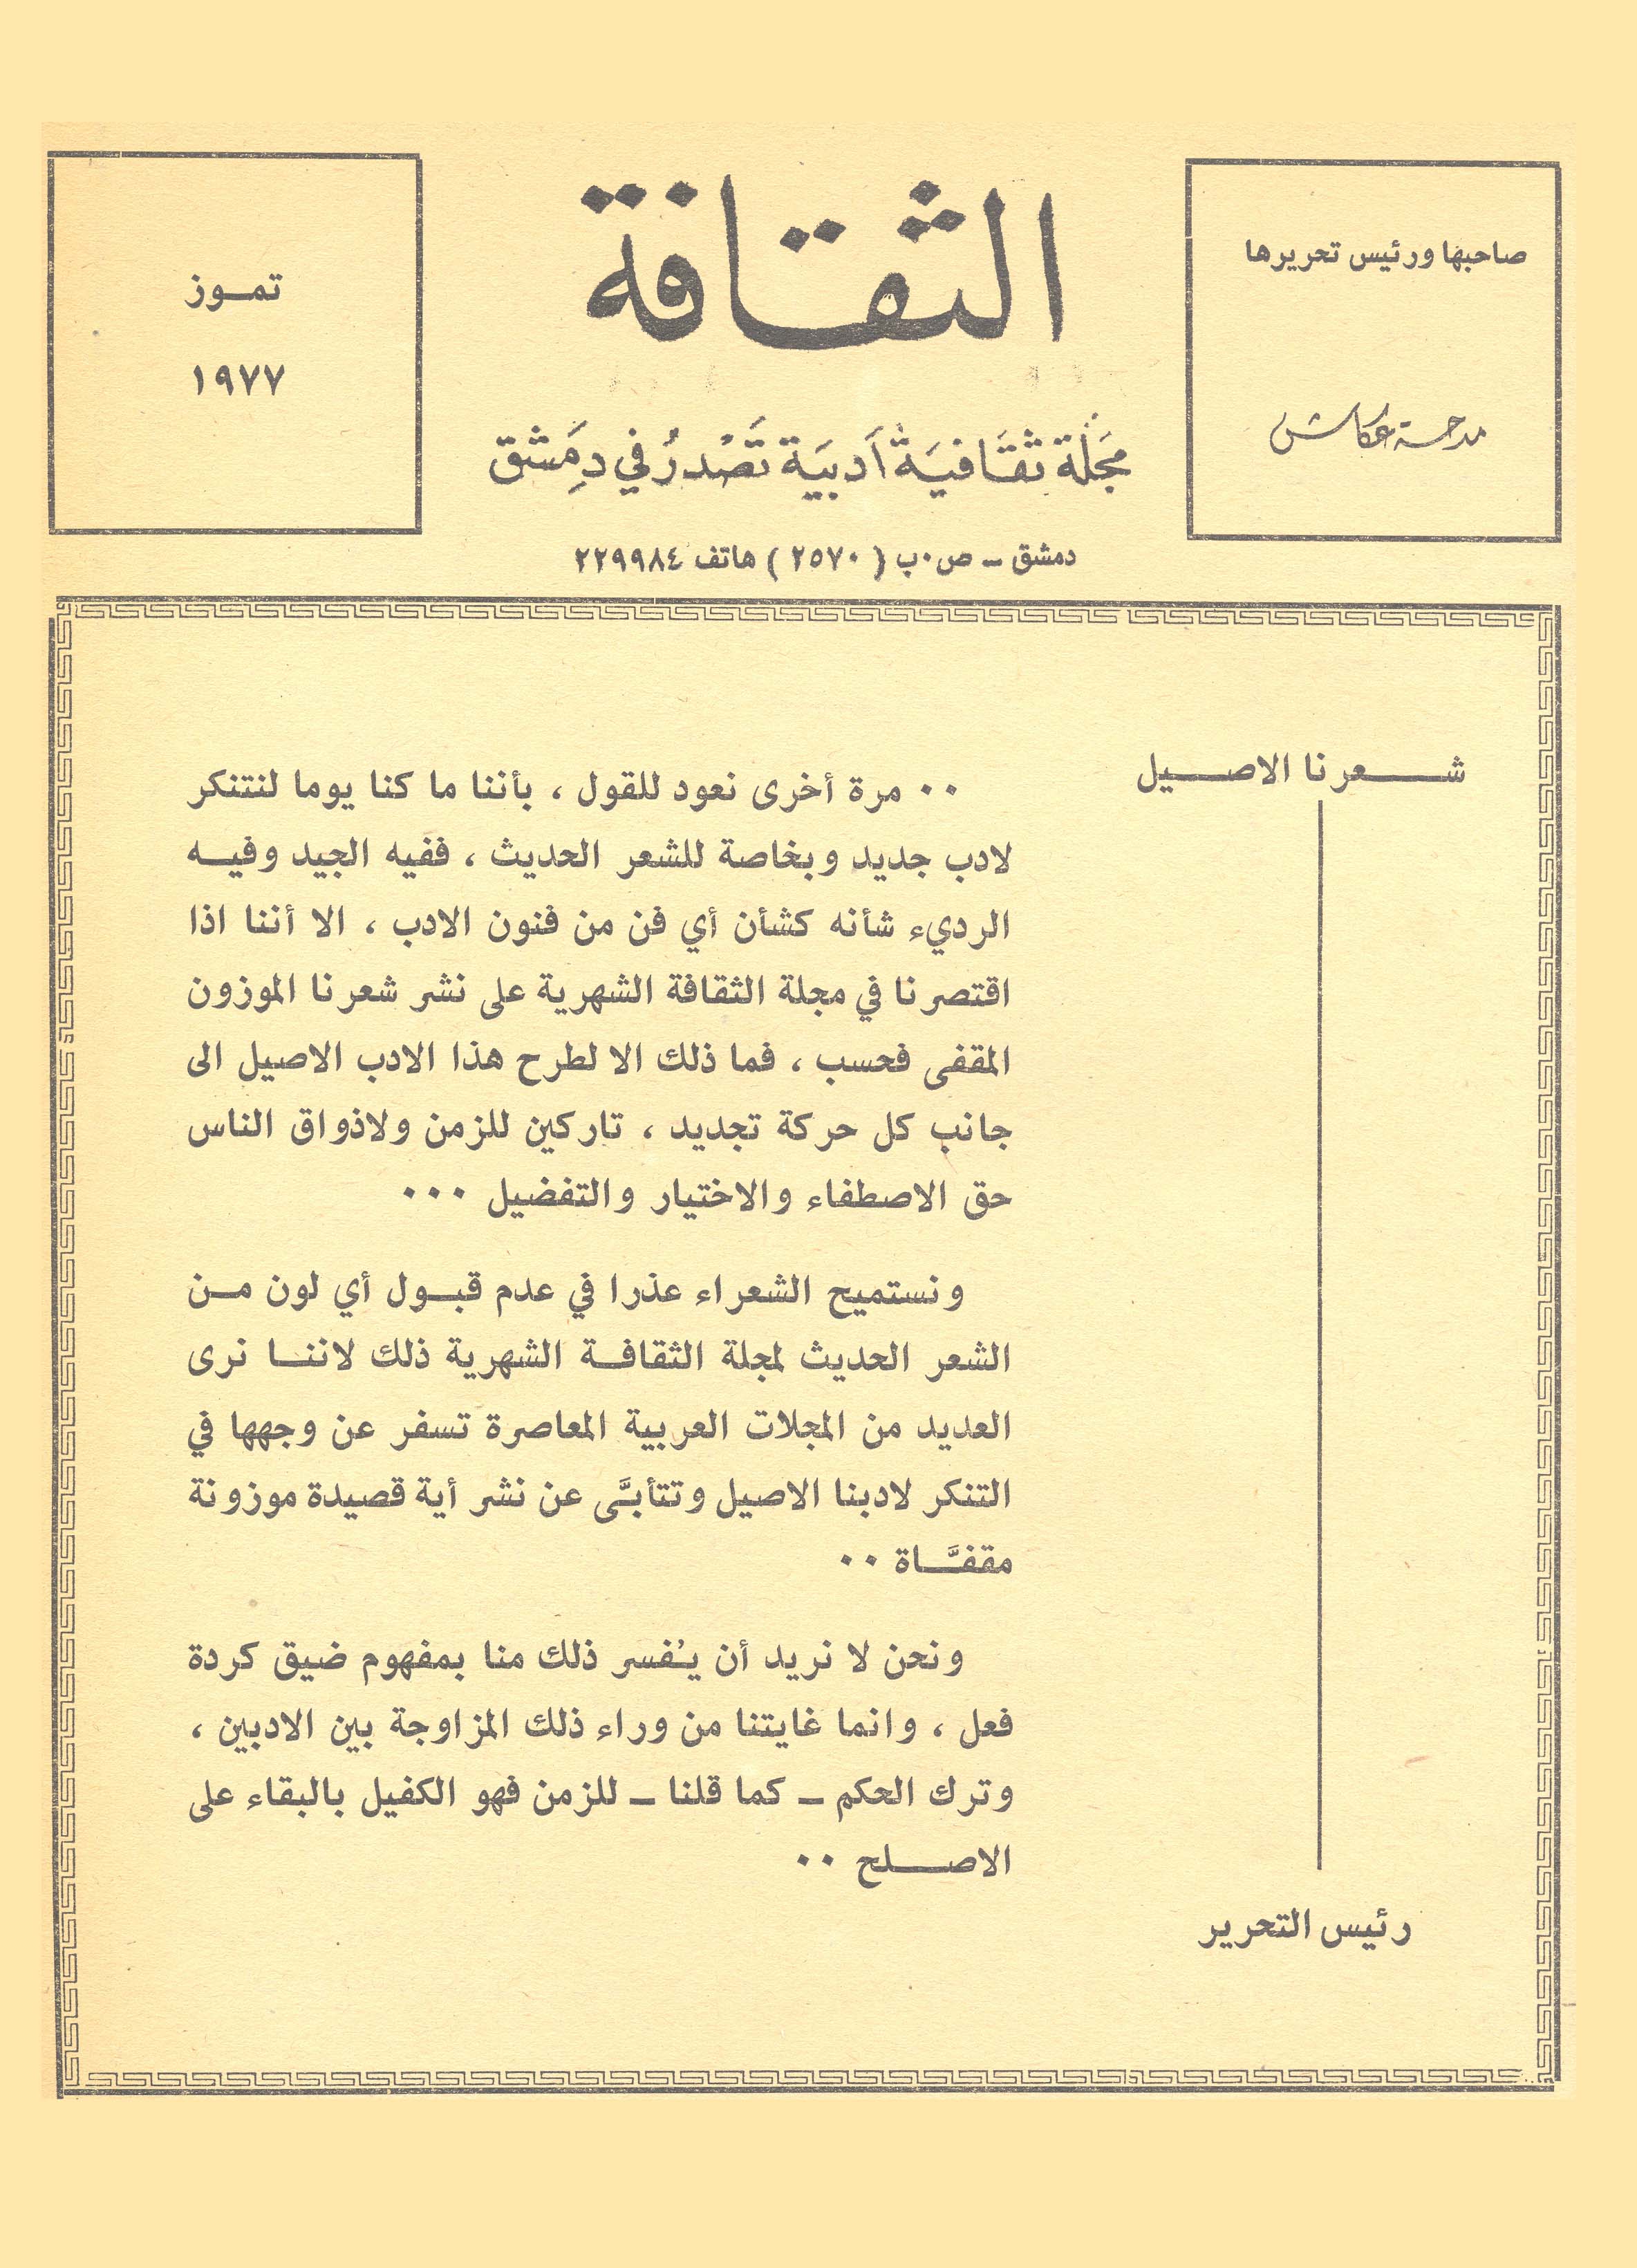 صاحبها ورئيس تحريرها
مدحة عكاش
الثقافة
مَجَلَّة ثقَافيَة أَدبيَة تَصْدرُ في دِمَشق
دمشق ــ ص٠ب ( ٢٥٧٠ ) هاتف ٢٢٩٩٨٤
تمــوز
١٩٧٧
شــــعرنا الاصــــيل
٠٠ مرة أخرى نعود للقول ، بأننا ما كنا يوما لنتنكر
لادب جديد وبخاصة للشعر الحديث ، ففيه الجيد وفيــه
الرديء شأنه كشأن أي فن من فنون الادب ، الا أننا اذا
اقتصرنا في مجلة الثقافة الشهرية على نشر شعرنا الموزون
المقفى فحسب ، فما ذلك الا لطرح هذا الادب الاصيل الى
جانب كل حركة تجديد ، تاركين للزمن ولاذواق الناس
حق الاصطفاء والاختيار والتفضيل ٠٠٠
ونستميح الشعراء عذرا في عدم قبــول أي لون مــن
الشعر الحديث لمجلة الثقافــة الشهرية ذلك لاننــا نرى
العديد من المجلات العربية المعاصرة تسفر عن وجهها في
التنكر لادبنا الاصيل وتتأبَّى عن نشر أية قصيدة موزونة
مقفَّــاة ٠٠
ونحن لا نريد أن يُفسر ذلك منا بمفهوم ضيق كردة
فعل ، وانما غايتنا من وراء ذلك المزاوجة بين الادبين ،
وترك الحكم ــ كما قلنا ــ للزمن فهو الكفيل بالبقاء على
الاصــــلح ٠٠
رئيس التحرير